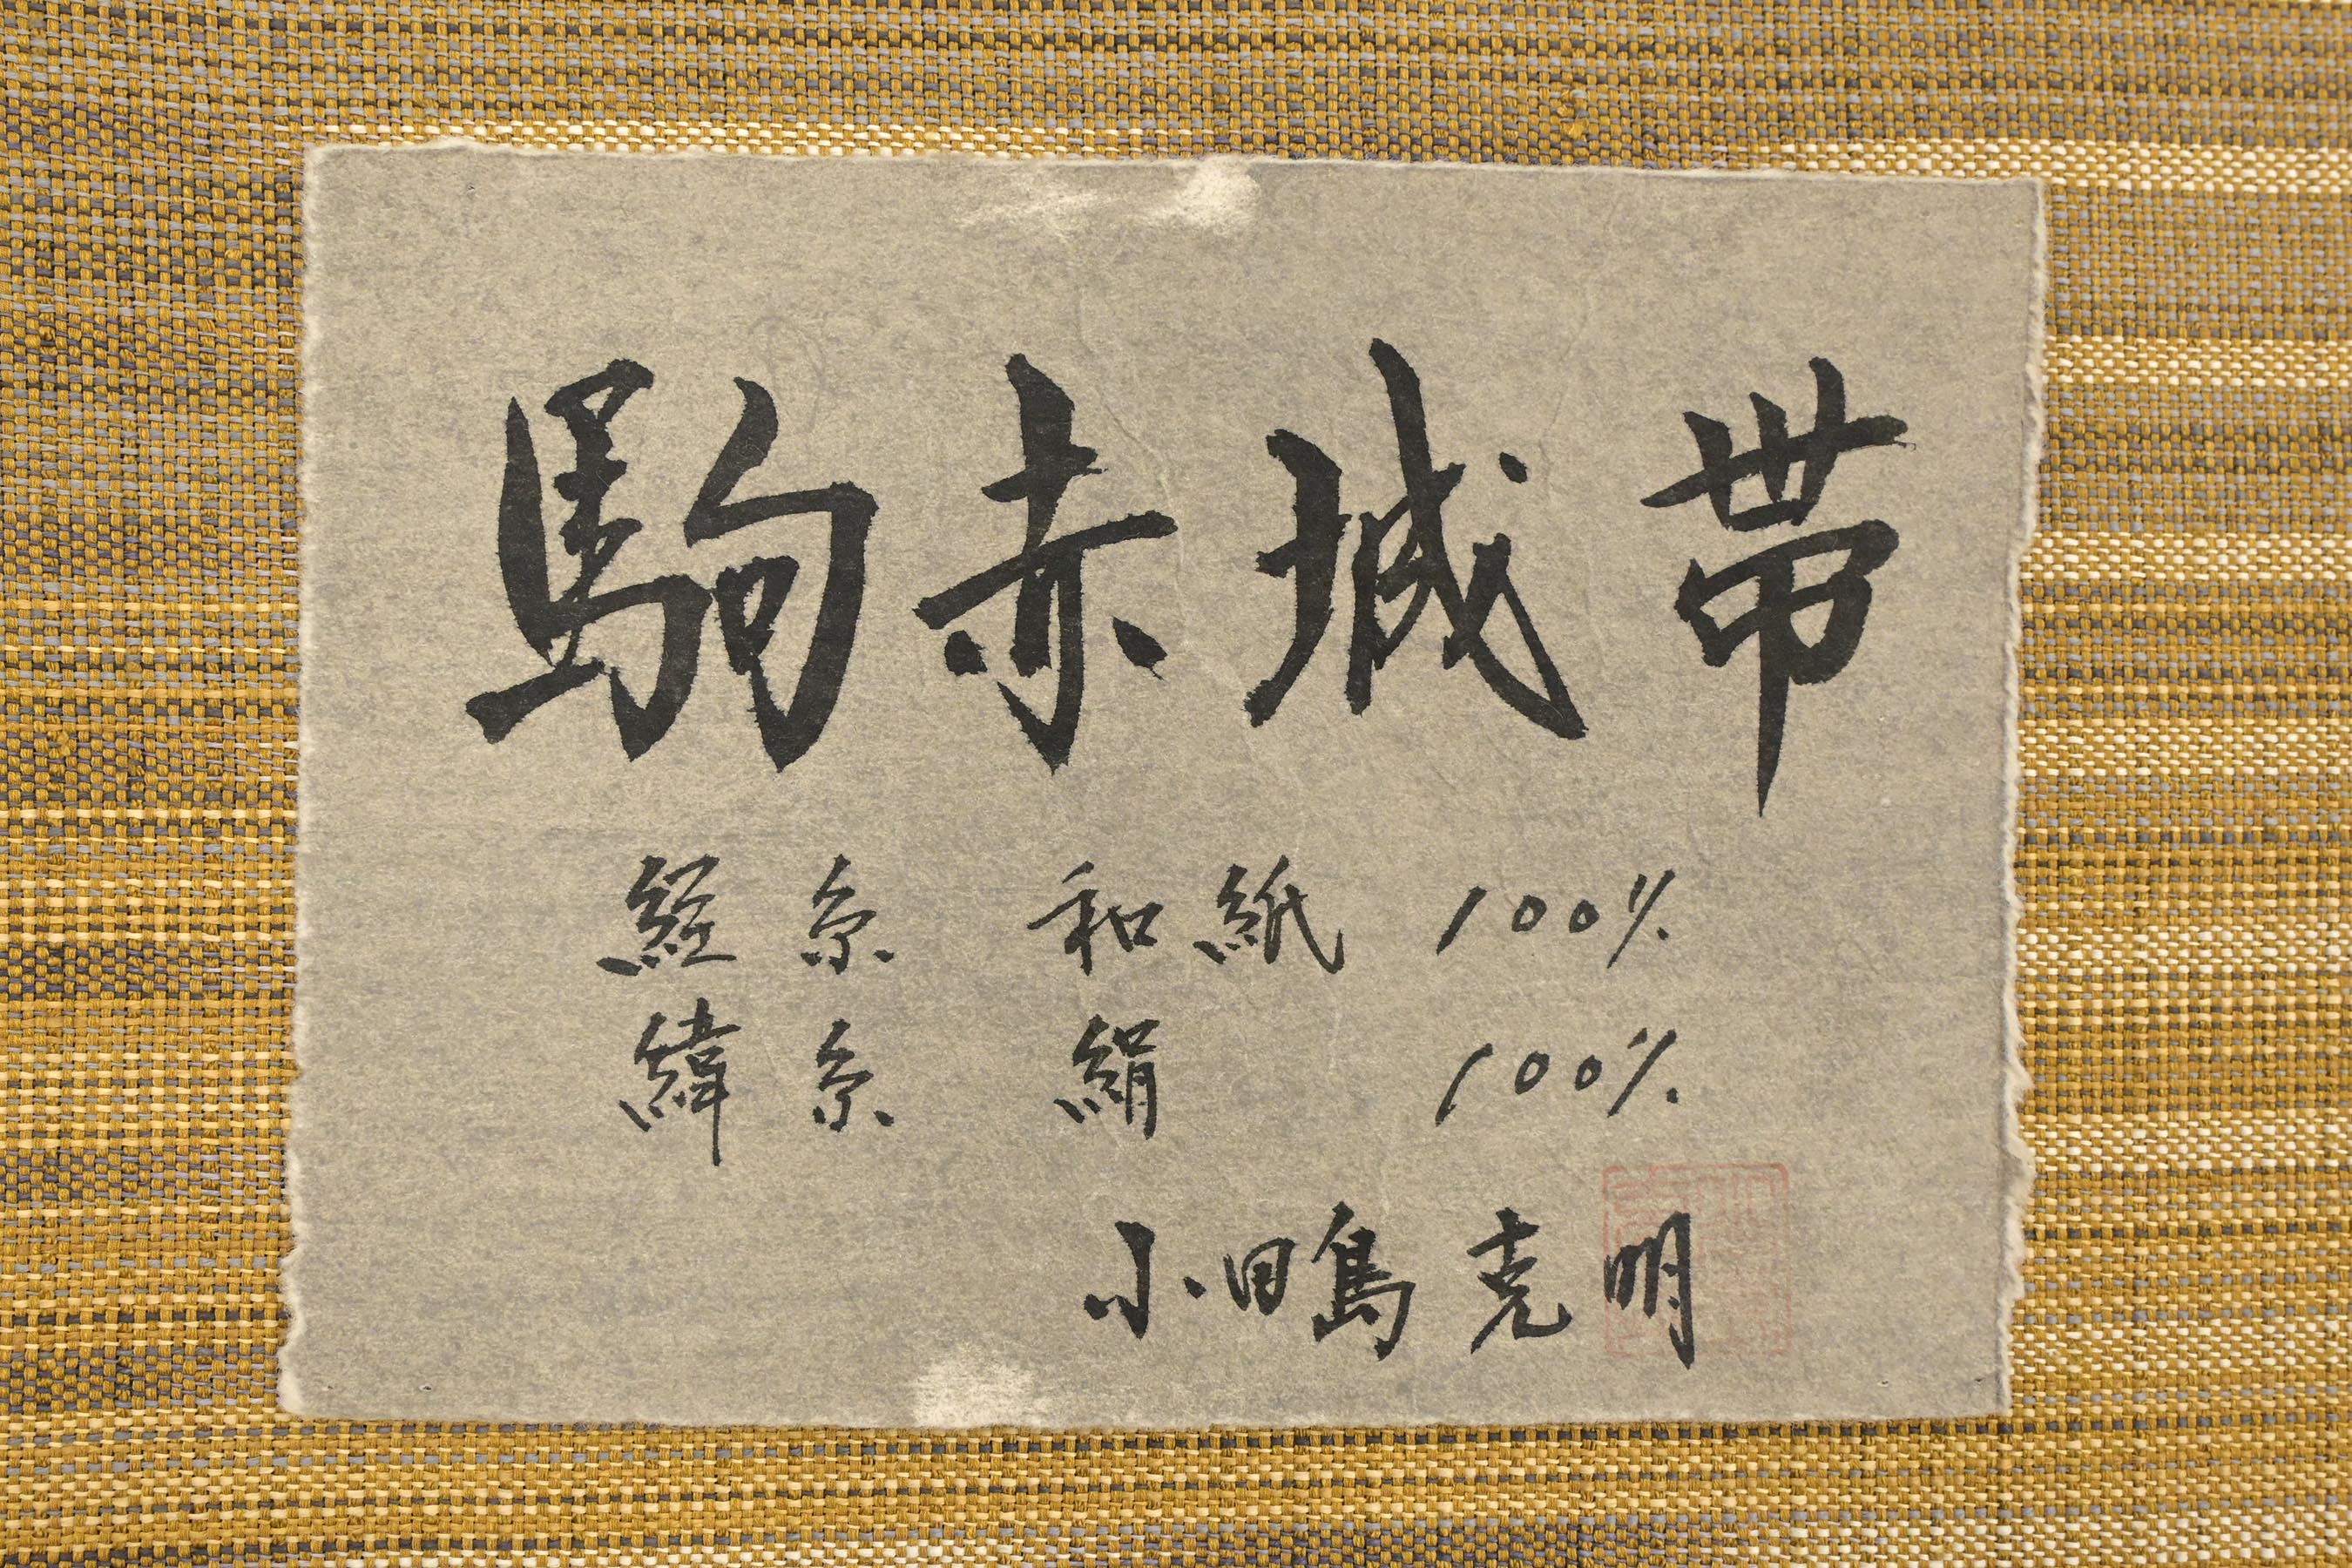 駒赤城帯
経糸 和紙 100%
緯糸 絹 100%
小田島克明